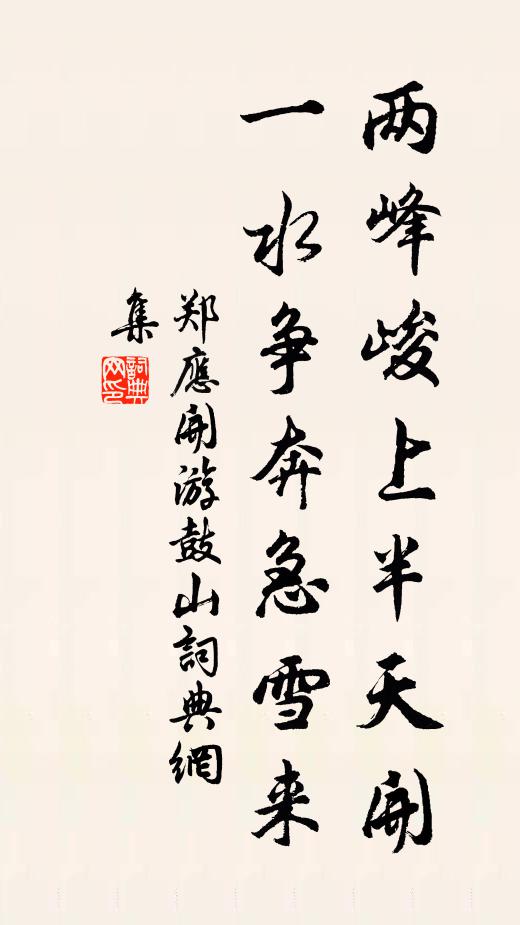 两峰峻上半天開
一水争奔急雪来
郑應開游鼓山詞典網
集
詞典网印